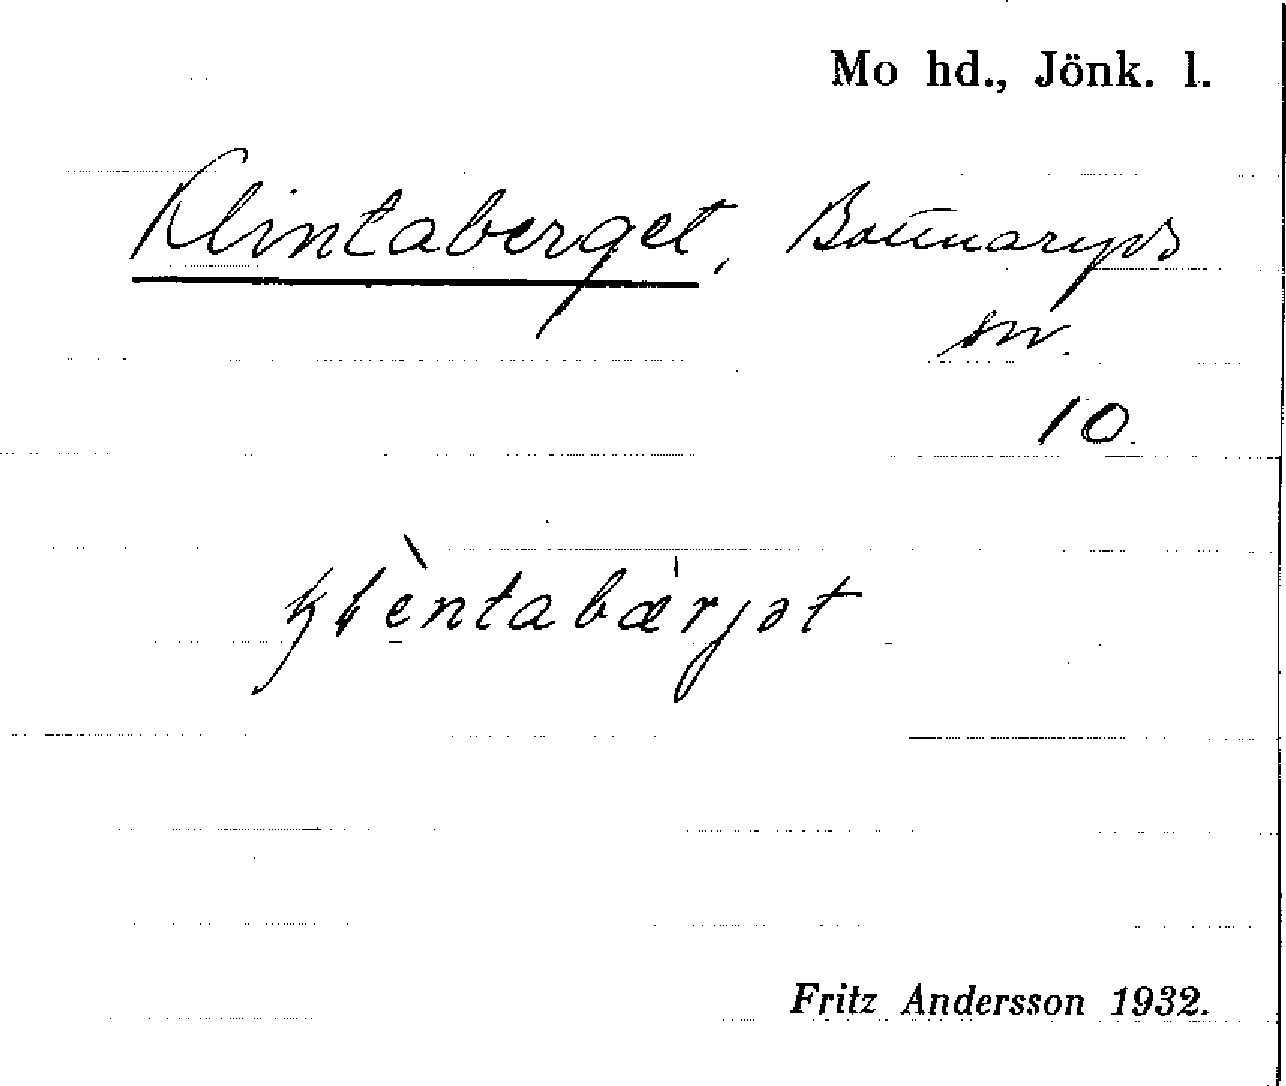 Mo hd., Jönk. l.
Klintaberget, Bottnaryds
sn.
10.
Fritz Andersson 1932.